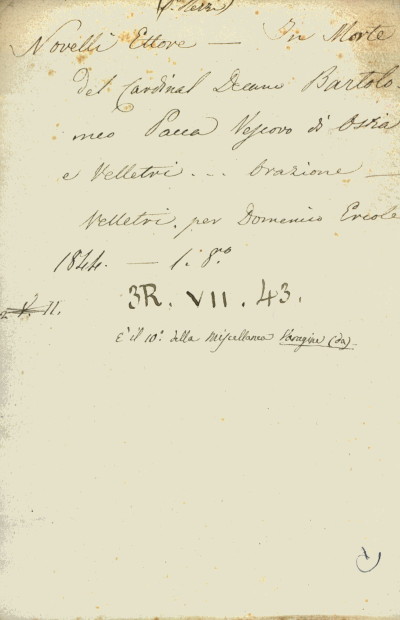 Novelli Ettore — In Morte
del Cardinal Decano Bartolo-
meo Pacca Vescovo di Ostia
e Velletri ... Orazione —
Velletri. per Domenico Ercole
1844. — 1. 8.º
II.
3R. VII. 43.
È il 10º della Miscellanea (da)